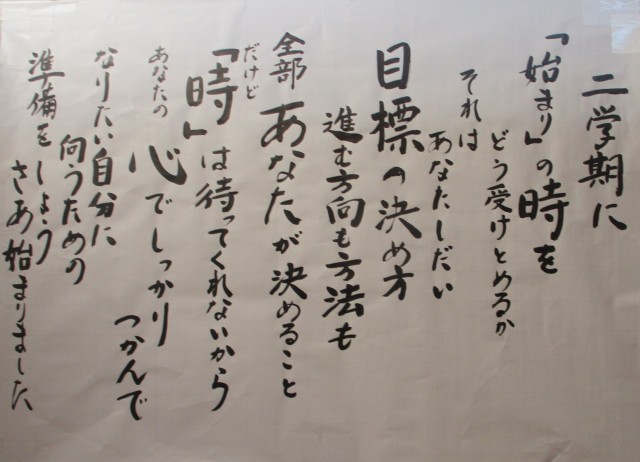 二学期に
「始まり」の時を
どう受けとめるか
それは
あなたしだい
目標の決め方
進む方向も方法も
全部あなたが決めること
だけど
「時」は待ってくれないから
あなたの
心でしっかり
つかんで
なりたい自分に
向うための
準備をしよう
さあ始まりました